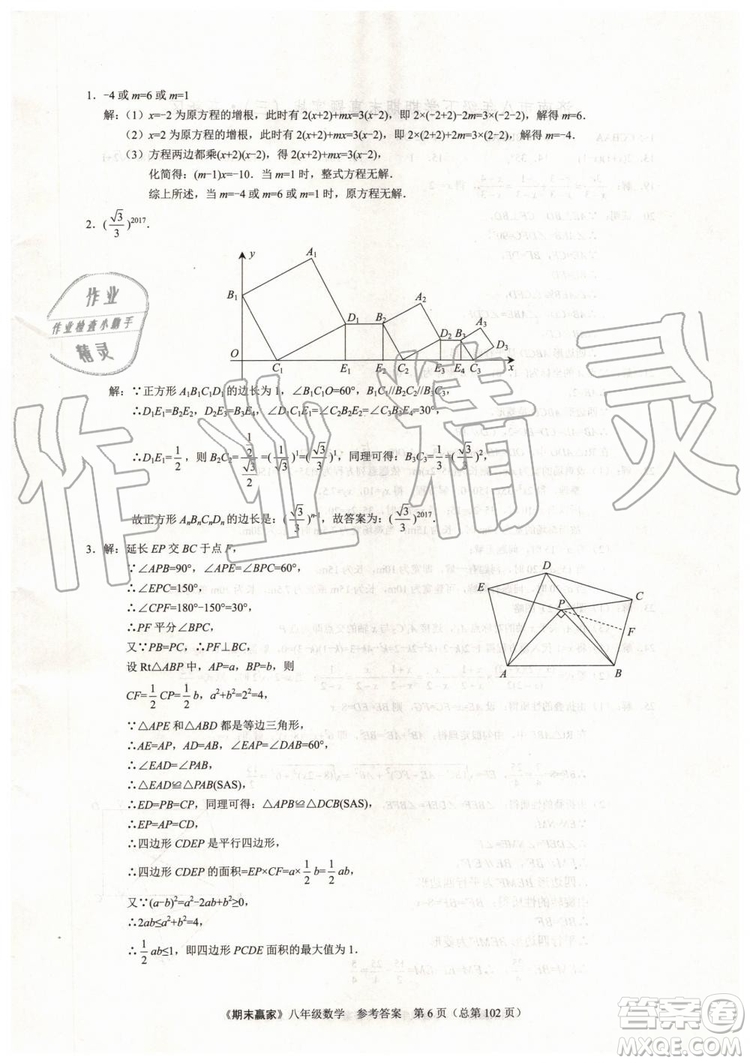 1. -4 或 m=6 或 m=1
解：(1) x=-2 为原方程的增根，此时有 2(x+2)+mx=3(x-2)，即 2×(-2+2)-2m=3×(-2-2)，解得 m=6.
(2) x=2 为原方程的增根，此时有 2(x+2)+mx=3(x-2)，即 2×(2+2)+2m=3×(2-2)，解得 m=-4.
(3) 方程两边都乘(x+2)(x-2)，得 2(x+2)+mx=3(x-2)，
化简得：(m-1)x=-10. 当 m=1 时，整式方程无解.
综上所述，当 m=-4 或 m=6 或 m=1 时，原方程无解.
2. (√3/3)^2017.
y
A1
B1
D1
B2
A2
D2
B3
A3
D3
O
C1
E1
E2
C2
E3
E4
C3
x
解：∵正方形 A1B1C1D1 的边长为 1，∠B1C1O=60°，B1C1//B2C2//B3C3…
∴D1E1=B2E2，D2E3=B3E4，∠D1C1E1=∠C2B2E2=∠C3B3E4=30°，
∴D1E1=1/2，则 B2C2=(1/2)/(√3/2)=(√3/3)^1=(√3/3)^1，同理可得：B3C3=1/3=(√3/3)^2，
故正方形 AnBnCnDn 的边长是：(√3/3)^n-1，故答案为：(√3/3)^2017.
3. 解：延长 EP 交 BC 于点 F，
∵∠APB=90°，∠APE=∠BPC=60°，
∴∠EPC=150°，
∴∠CPF=180°-150°=30°，
∴PF 平分∠BPC，
又∵PB=PC，∴PF⊥BC，
设 Rt△ABP 中，AP=a，BP=b，则
CF=1/2 CP=1/2 b，a²+b²=2²=4，
∵△APE 和△ABD 都是等边三角形，
∴AE=AP，AD=AB，∠EAP=∠DAB=60°，
∴∠EAD=∠PAB，
∴△EAD≌△PAB(SAS)，
∴ED=PB=CP，同理可得：△APB≌△DCB(SAS)，
∴EP=AP=CD，
∴四边形 CDEP 是平行四边形，
∴四边形 CDEP 的面积=EP×CF=a×1/2 b=1/2 ab，
又∵(a-b)²=a²-2ab+b²≥0，
∴2ab≤a²+b²=4，
∴1/2 ab≤1，即四边形 PCDE 面积的最大值为 1.
E
D
C
P
F
A
B
《期末赢家》八年级数学 参考答案 第 6 页（总第 102 页）
作业
作业检查小助手
精灵
作业精灵